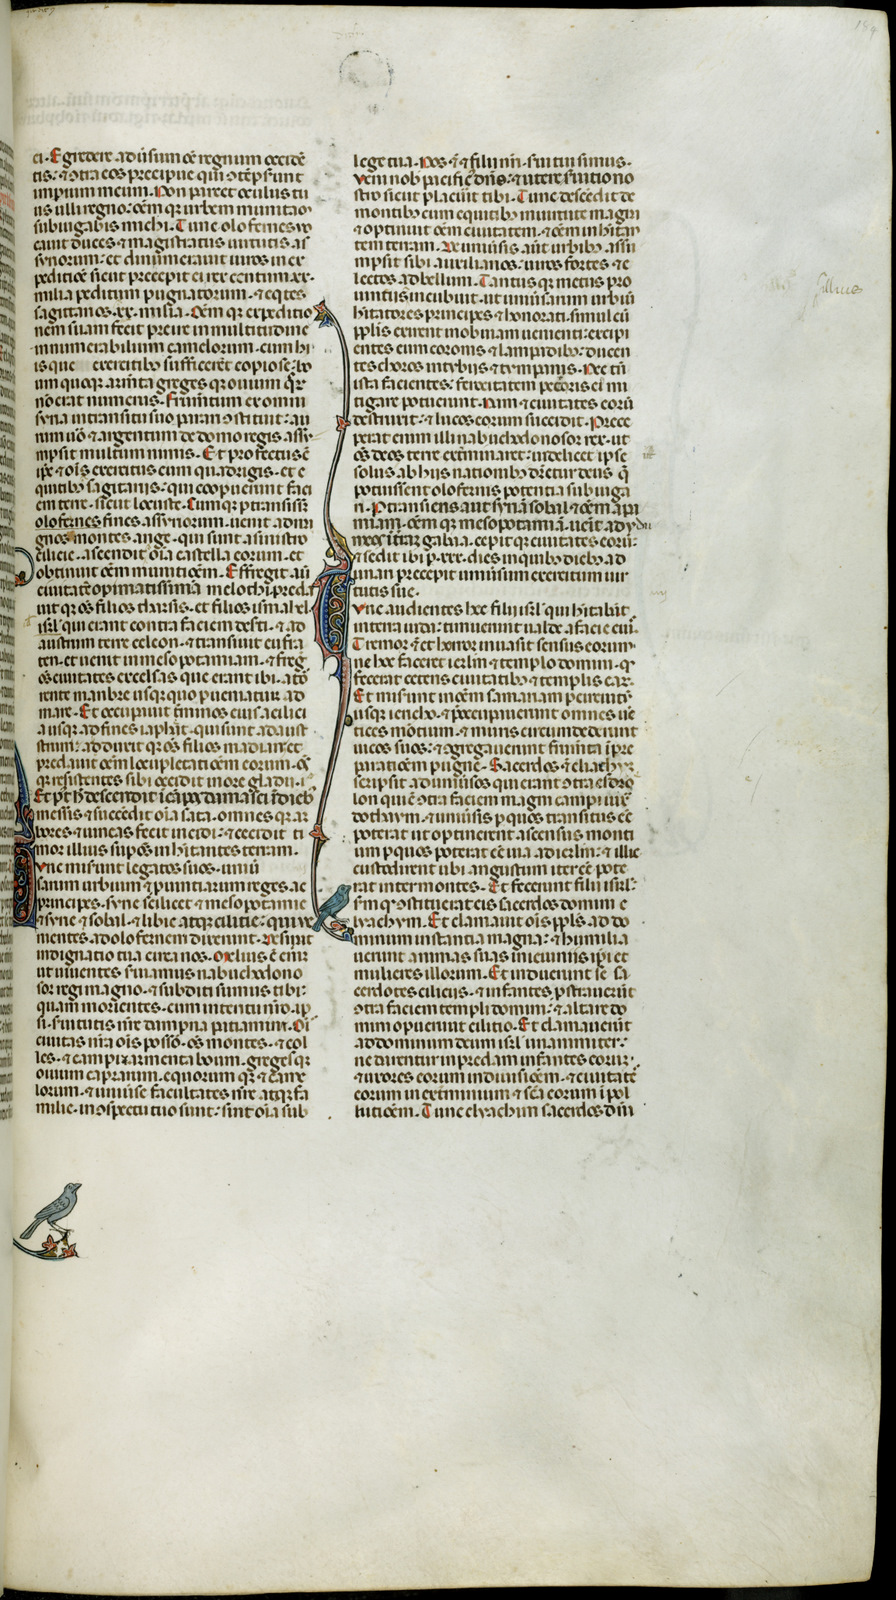 ci. Egredere adūsum oē regnum occidē
tis. & ɔtra eos precipue qui ɔtēpsunt
imperium meum. Non parcet oculus tu
us ulli regno: oēm qꝫ urbem munitaꝫ
subiugabis michi. Tunc olofernes uo
cauit duces & magistratus uirtutis as
synorum: et dinumerauit uiros in ex
peditiōē sicut precepit ei rex centum .xx.
milia peditum pugnatorum. & eqtes
sagittarios .xx. milia. Oēm qꝫ expeditio
nem suam fecit preire in multitudine
innumerabilium camelorum. cum hi
is que exercitibꝫ sufficerēt copiose: bo
um quoqꝫ armta greges qꝫ ouium qꝫ
nō erat numerus. Frumtum ex omni
syria in transitu suo parari ɔstituit: au
rum uō & argentum de domo regis assū
mpsit multum nimis. Et profectus ē
ipē & oīs exercitus cum quadrigis. et e
quitibꝫ sagitariis: qui coopuerunt faci
em terre. sicut locuste. Cumqꝫ ptransiss;
olofernes fines assyriorum. uenit ad m
gnos montes ange. qui sunt a sinistro
cilicie. ascendit oīa castella eorum. et
obtinuit oēm munitiōēm. Effregit aū
ciuitatē opinatissimā melochi. preda
uit qꝫ oēs filios tharsis. et filios ismahel.
isrl' qui erant contra faciem deserti. & ad
austrum terre celeon. & transiuit eufra
ten. et uenit in mesopotamiam. & freg
oēs ciuitates excelsas que erant ibi. a to
rente manbre usqꝫ quo pueniatur ad
mare. Et occupauit tminos eius a cilici
a usqꝫ ad fines iaphet. qui sunt ad aust
strum: abduxit qꝫ oēs filios madian et
predauit oēm locupletatiōēm eorum. oēs
qꝫ resistentes sibi occidit in ore gladii.
Et pt h descendit i cāpos damasci i diebꝫ
messis & succēdit oīa sata. omnes qꝫ ar
bores & uineas fecit incidi: & cecidit ti
mor illius sup oēs inhitantes terram.
Tunc miserunt legatos suos. uniū
sarum urbium & puintiarum reges ac
principes. syrie scilicet & mesopotamie
& syrie & sobal. & libie atqꝫ cilitie: qui ue
nientes ad olofernem dixerunt. Desinat
indignatio tua circa nos. Melius ē enī
ut uiuentes seruiamus nabuchodono
sor regi magno. & subditi simus tibi:
quam morientes. cum interitu nrō. ip
si. seruitutis nre dampna patiamur. Oīs
ciuitas nrā oīs possō. oēs montes. & col
les. & campi & armenta boum. greges qꝫ
ouium caprarum. equorum qꝫ & came
lorum. & uniuse facultates nre atqꝫ fa
milie. in ɔspectu tuo sunt: sint oīa sub
lege tua. Nos ē & filii nri. serui tui simus.
Veni nob pacificꝫ dn̄s: & utere seruitio no
stro sicut placuit tibi. Tunc descēdit de
montibꝫ cum equitibꝫ in uirtute magn
& optinuit oēm ciuitatem. & oēm inhitan
tem terram. De uniusis aūt urbibꝫ assū
mpsit sibi auxiliarios. uiros fortes & e
lectos ad bellum. Tantus qꝫ metus pro
uintiis incubuit. ut uniusarum urbiū
hitatores principes & honorati. simul cū
pplis exirent in obuiam uenienti: excipi
entes eum coronis & lampadibꝫ: ducen
tes choros in tybiis & tympanis. Nec tn̄
ista facientes: feroitatem pectoris ei mi
tigare potuerunt. Nam & ciuitates eorū
destruxit: & lucos eorum succidit. Prece
perat enim illi nabuchodonosor rex. ut
oēs deos terre extminaret: uidelicet ip se
solus ab hiis nationibꝫ dicretur deus. q̄
potuissent olofernis potentia subiuga
ri. Ptransiens aut syriā sobal & oēm apa
miam. oēm qꝫ mesopotamiā. uenit ad ydu
meos i trāꝫ gabaa. cepit qꝫ ciuitates eorū:
& sedit ibi p .xxx. dies in quibꝫ diebꝫ ad
unari precepit uniusum exercitum uir
tutis sue.
Tunc audientes hec filii isrl' qui hitabāt
in terra iuda: timuerunt ualde a facie eiꝰ.
Tremor & et horror inuasit sensus eorum.
ne hoc faceret ierlm & templo domini. qꝫ
fecerat ceteris ciuitatibꝫ & templis earꝫ.
Et miserunt in oēm samariam p circuitū
usqꝫ iericho. & preoccupauerunt omnes ue
tices montium. & muris circumdederunt
uicos suos: & ɔgregauerunt frumta i pre
paratiōēm pugne. Sacerdos ē eliachym
scripsit ad uniusos qui erant ɔtra esdre
lon qui ē ɔtra faciem magni campi iuxꝫ
dothaym. & uniusis p quos transitus eē
poterat ut optinerent ascensus monti
um p quos poterat eē uia ad ierlm: & illic
custodirent ubi angustum iter eē pote
rat inter montes. Et fecerunt filii isrl:
sm qꝫ ɔstituerat eis sacerdos domini e
lyachym. Et clamauit oīs ppls ad do
minum instantia magna: & humilia
uerunt animas suas in ieiuniis ipi et
mulieres illorum. Et induerunt se sa
cerdotes ciliciis. & infantes pstrauerūt
ɔtra faciem templi domini: & altare do
mini opuerunt cilitio. Et clamauerūt
ad dominum deum isrl' unanimiter:
ne darentur in predam infantes eorum.
& uxores eorum in diuisiōēm. & ciuitatē
eorum in extminium & scā eorum i pol
lutiōēm. Tunc elyachim sacerdos dn̄i